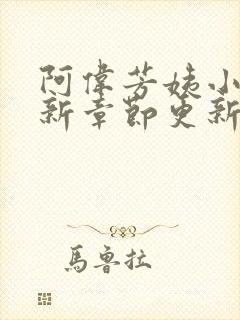 阿偉芳姨小
新章節更新
馬魯拉